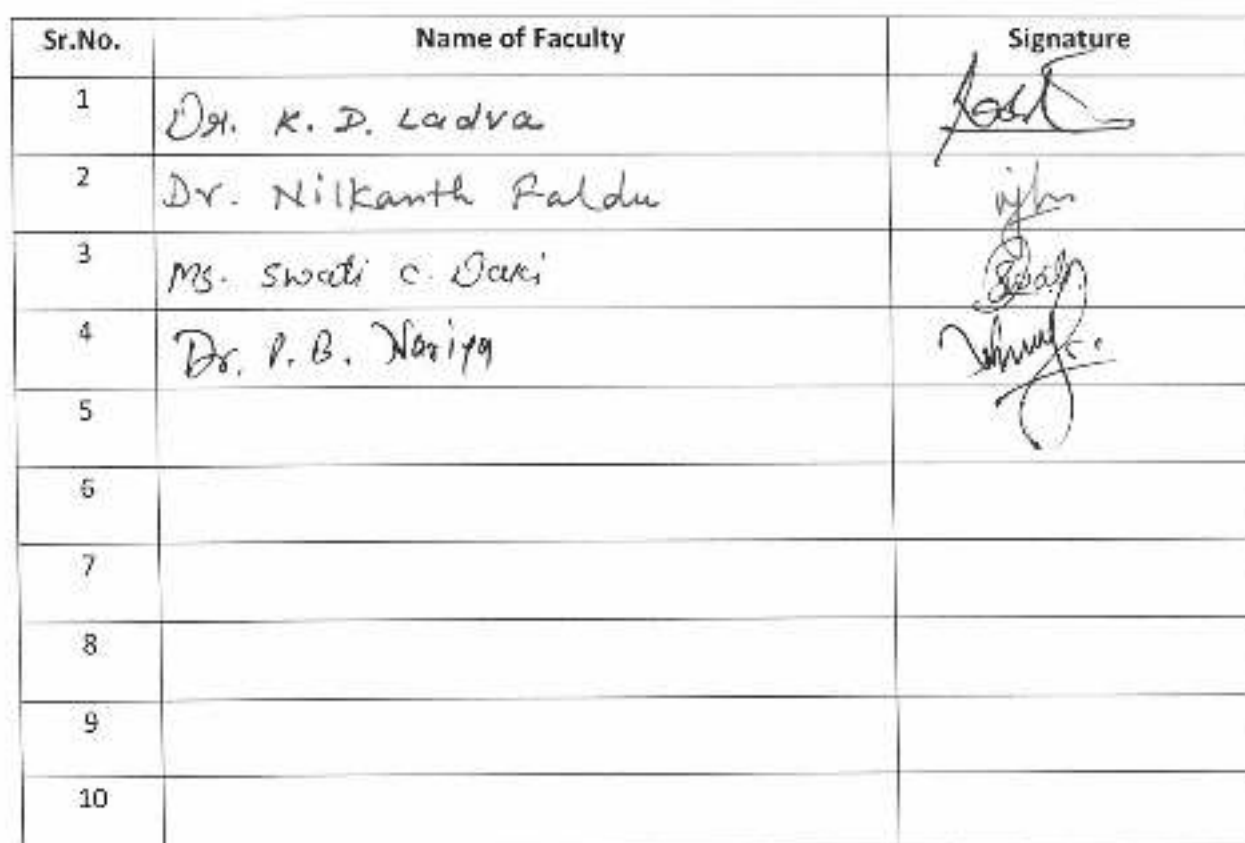 Sr.No. Name of Faculty Signature
1 Dr. K. D. Ladva
2 Dr. Nilkanth Faldu
3 Ms. Swati C. Daki
4 Dr. P. B. Variya
5
6
7
8
9
10